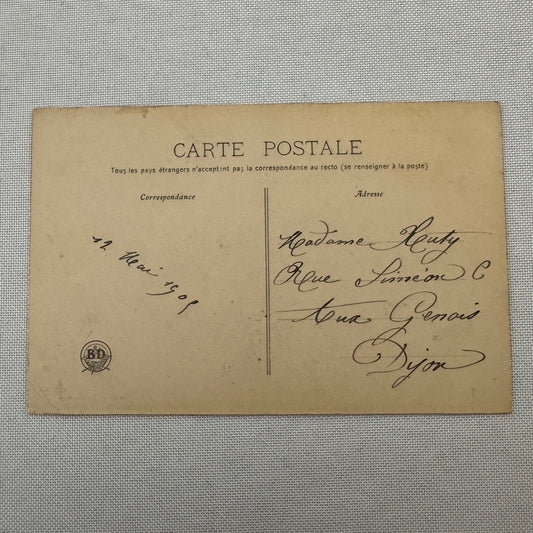 CARTE POSTALE
Tous les pays étrangers n'acceptent pas la correspondance au recto (se renseigner à la poste)
Correspondance
Adresse
12 Mai 1905
Madame Huty
Rue Siméon C
Aux Genois
Dijon
BD